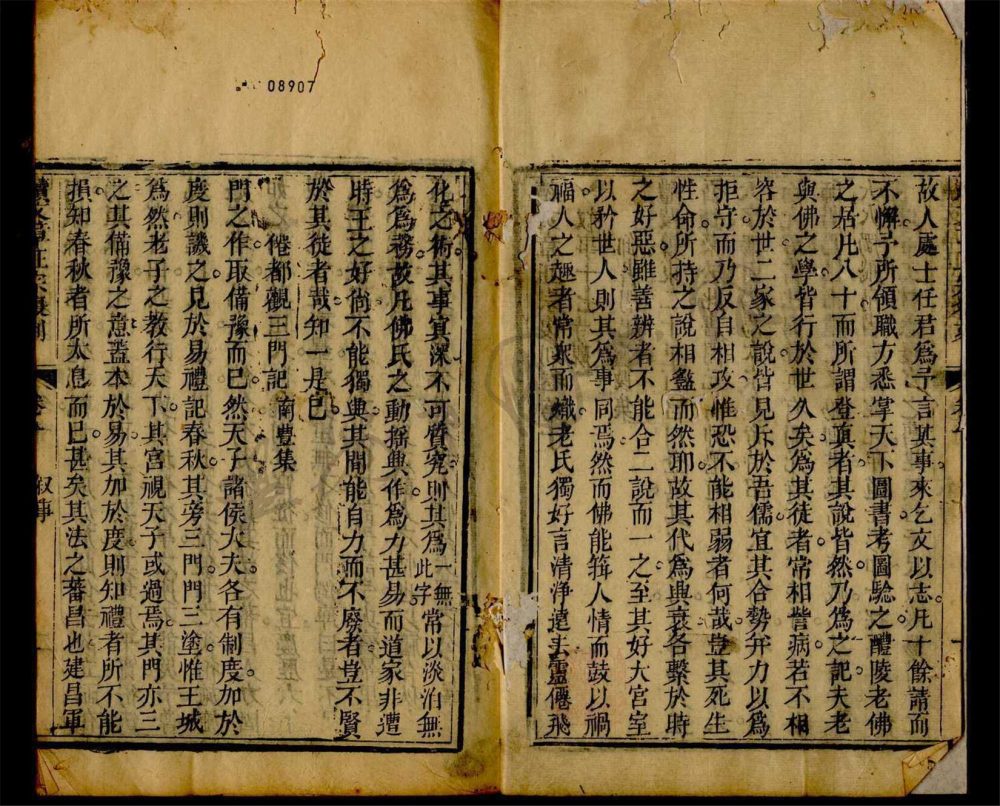 08907
故人處士任君爲予言其事來乞文以志凡十餘請而
不懈予所領職方悉掌天下圖書考圖驗之醴陵老佛
之居凡八十而所謂登真者其說皆然乃爲之記夫老
與佛之學皆行於世久矣爲其徒者常相訾病若不相
容於世二家之說皆見斥於吾儒宜其合勢并力以爲
拒守而乃反自相攻惟恐不能相弱者何哉豈其死生
性命所持之說相盭而然耶故其代爲興衰各繫於時
之好惡雖善辨者不能合二說而一之至其好大宮室
以矜世人則其爲事同焉然而佛能箝人情而鼓以禍
福人之趣者常衆而熾老氏獨好言清淨遠去靈僊飛
化之術其事冥深不可質究則其爲一無此字常以淡泊無
爲爲務故凡佛氏之動搖興作爲力甚易而道家非遭
時王之好尚不能獨興其間能自力而不廢者豈不賢
於其徒者哉知一是已
僊都觀三門記 南豐集
門之作取備豫而已然天子諸侯大夫各有制度加於
度則譏之見於易禮記春秋其旁三門門三塗惟王城
爲然老子之教行天下其宮視天子或過焉其門亦三
之其備豫之意蓋本於易其加於度則知禮者所不能
損知春秋者所太息而已甚矣其法之蕃昌也建昌軍
叙事